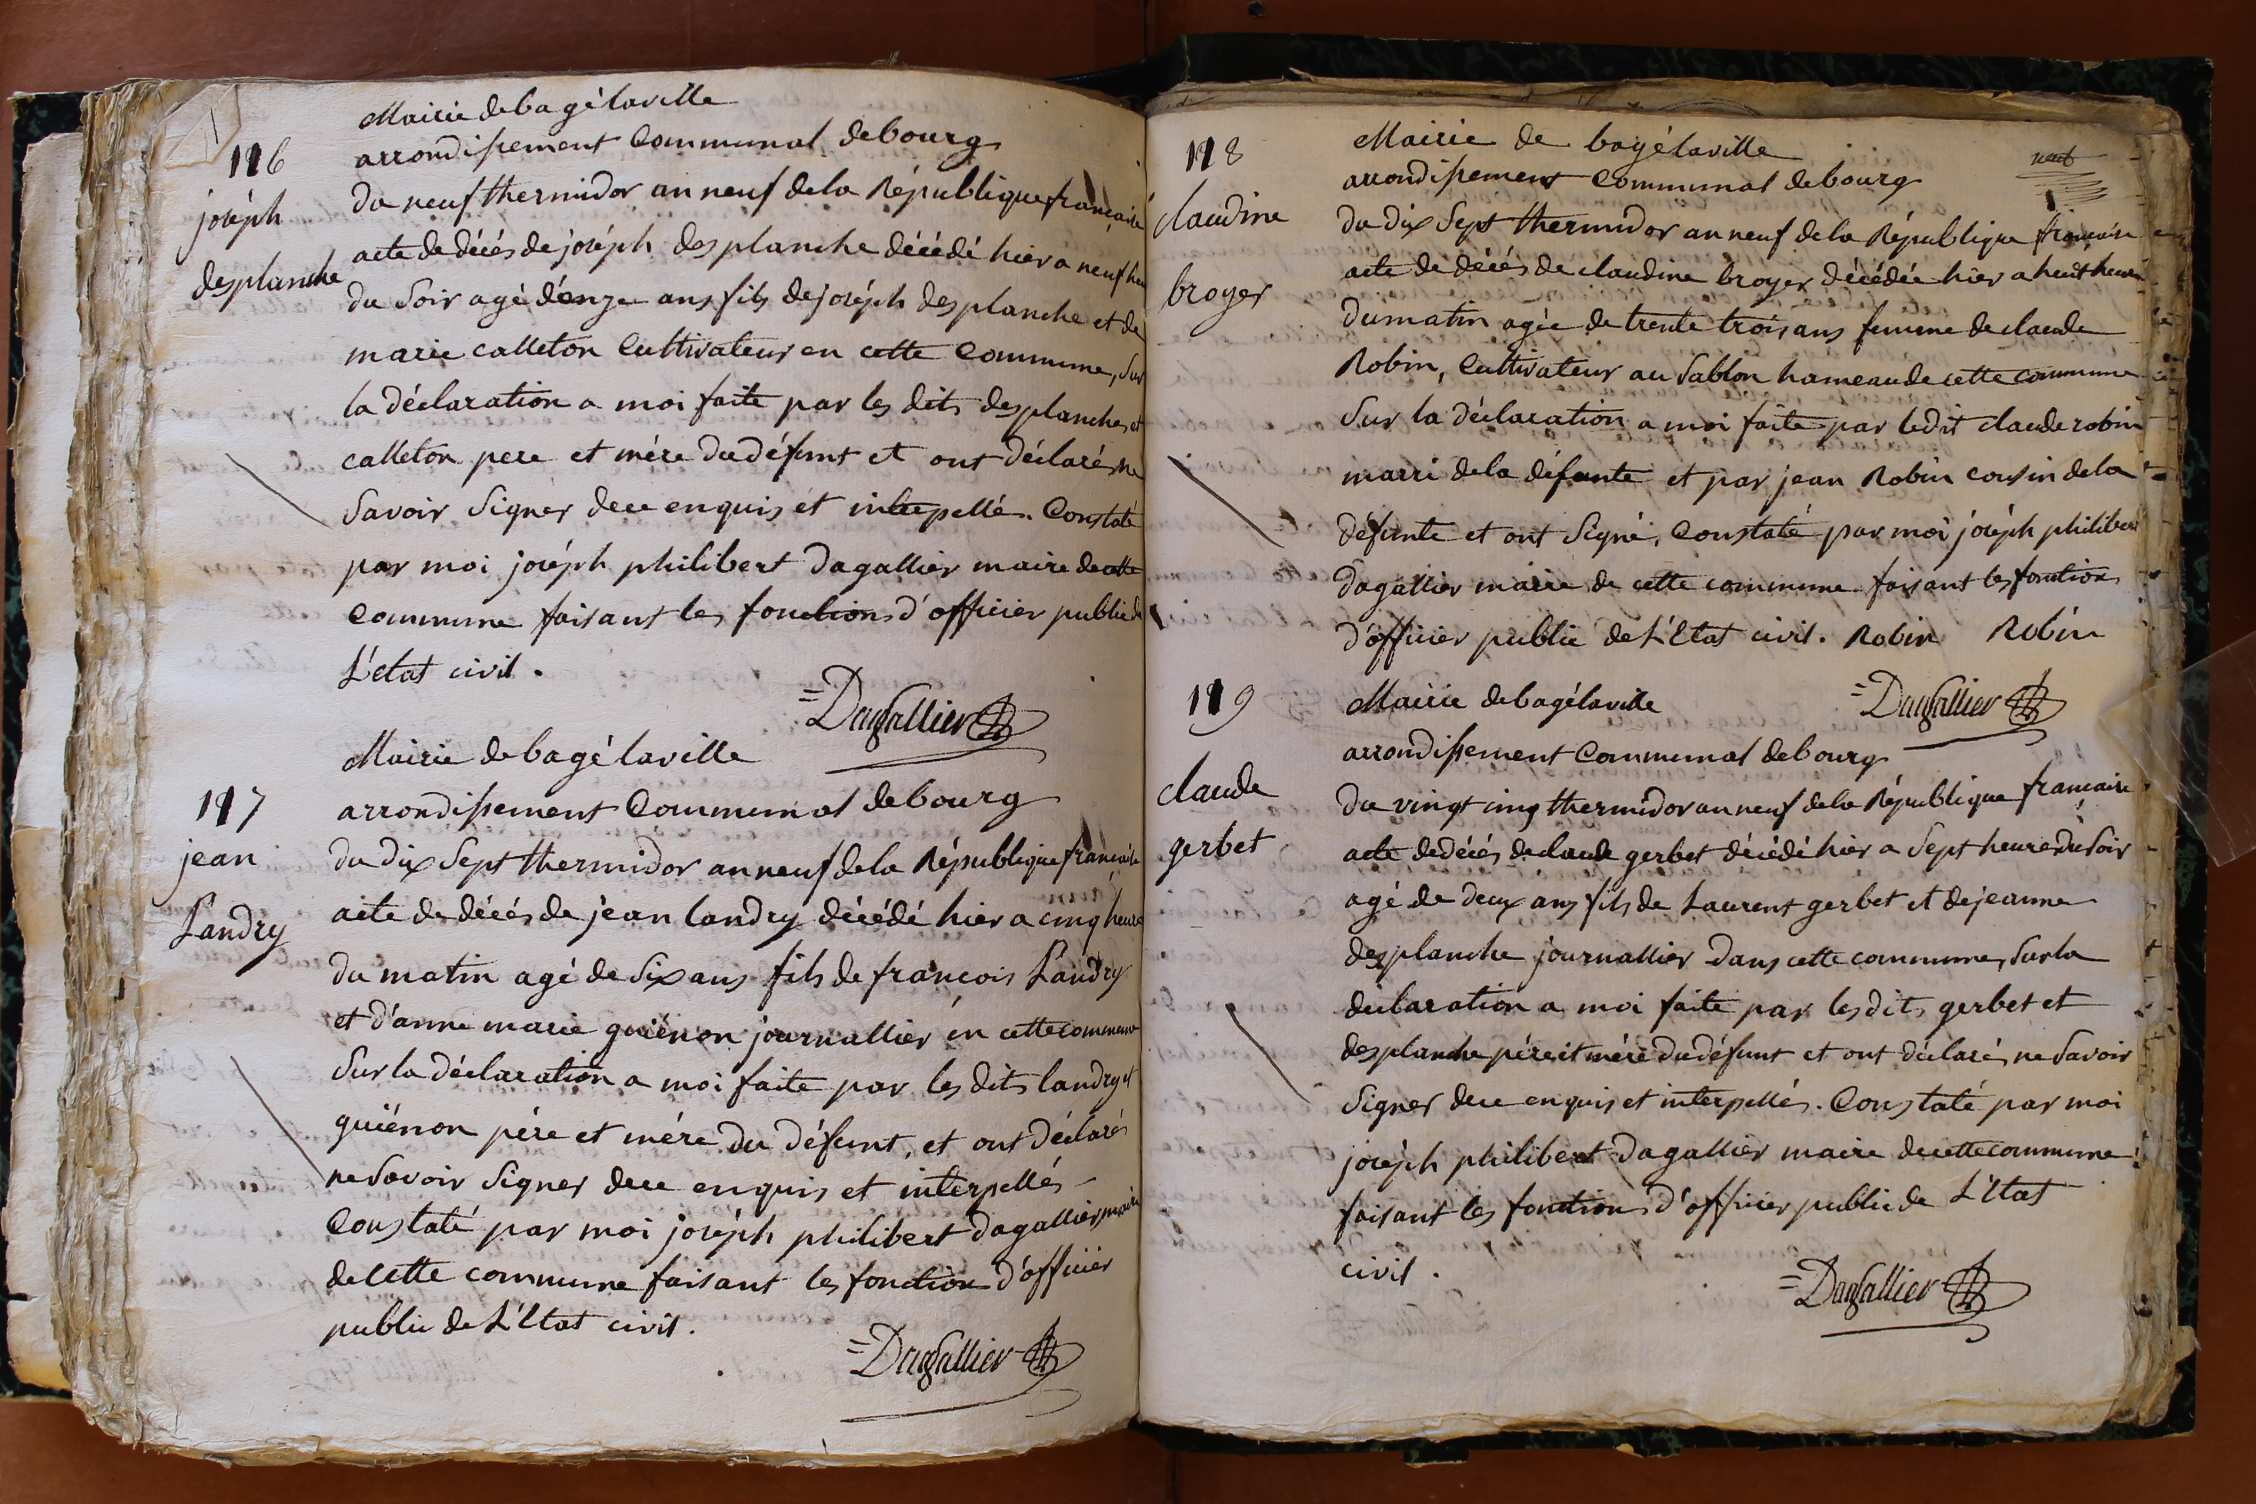 Mairie de bagé laville
arrondissement Communal de bourg
116
joséph
desplanche
du neuf thermidor an neuf de la République française
acte de décés de joséph desplanche décédé hier a neuf heu
du Soir agé d'onze ans fils de joséph desplanche et de
marie calleton Cultivateur en cette Commune, Sur
la déclaration a moi faite par les dits desplanche et
calleton pere et mére du défunt et ont déclarés ne
Savoir Signer de ce enquis et interpellé. Constaté
par moi joséph philibert dagallier maire de cette
Commune faisant les fonctions d'officier public de
L'etat civil.
=Dagallier
Mairie de bagé laville
117
jean
Landry
arrondissement Communal de bourg
du dix Sept thermidor an neuf de la République française
acte de décés de jean landry décédé hier a cinq heure
du matin agé de Six ans fils de francois Landry
et d'anne marie guiénon journallier en cette commune
Sur la déclaration a moi faite par les dits landry et
guiénon pére et mére du défunt, et ont déclarés
ne Savoir Signer de ce enquis et interpellés
Constaté par moi joséph philibert dagallier maire
de cette commune faisant les fonctions d'officier
public de L'Etat civil.
=Dagallier
118
claudine
broyer
Mairie de bagé laville
arrondissement Communal de bourg
neuf
du dix Sept thermidor an neuf de la République française
acte de décés de claudine broyer décédée hier a huit heures
du matin agée de trente trois ans femme de claude
Robin, Cultivateur au Sablon hameau de cette commune
Sur la déclaration a moi faite par ledit claude robin
marri de la défunte et par jean Robin cousin de la
défunte et ont Signé, Constaté par moi joséph philibert
dagallier maire de cette commune faisant les fonctions
d'officier public de L'Etat civil. Robin Robin
=Dagallier
119
claude
gerbet
Mairie de bagé laville
arrondissement Communal de bourg
du vingt cinq thermidor an neuf de la République française
acte de décés de claude gerbet décédé hier a Sept heures du Soir
agé de deux ans fils de Laurent gerbet et de jeanne
desplanche journallier dans cette commune, Sur la
déclaration a moi faite par les dits gerbet et
desplanche pére et mére du défunt et ont déclarés ne Savoir
Signer de ce enquis et interpellés. Constaté par moi
joséph philibert dagallier maire de cette commune
faisant les fonctions d'officier public de L'Etat
civil.
=Dagallier